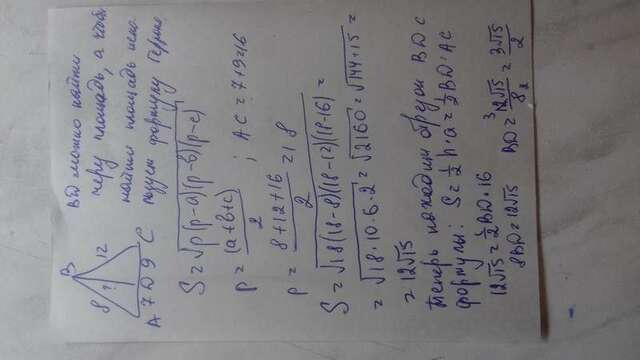 B
8 ? 12
A 7 D 9 C
BD можно найти
через площадь, а чтобы
найти площадь испо-
льзуем формулу Герона
S = √p(p-a)(p-b)(p-c)
p = (a+b+c)/2 ; AC = 7+9=16
p = 8+12+16/2 = 18
S = √18(18-8)(18-12)(18-16) =
= √18·10·6·2 = √2160 = √144·15 =
= 12√15
Теперь находим отрезок BD с
формулы: S = 1/2 h·a = 1/2 BD·AC
12√15 = 1/2 BD·16
8BD = 12√15 BD = 3 12√15/8 2 = 3√15/2